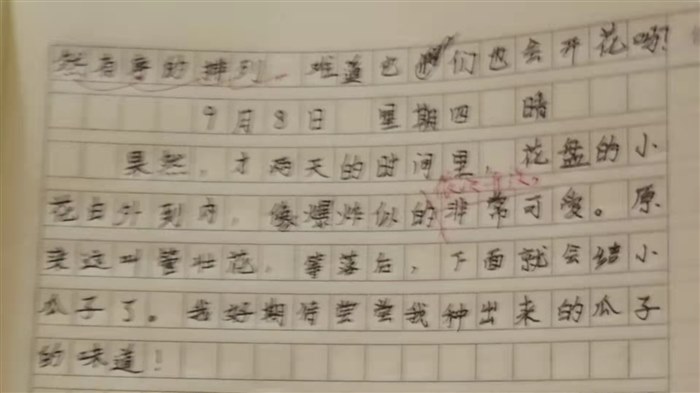 然有序的排列。难道它们也会开花吗？
9月8日 星期四 晴
果然，才两天的时间里，花盘的小
花自外到内，像爆炸似的非常可爱。原
来这叫管状花，等落后，下面就会结小
瓜子了。我好期待尝尝我种出来的瓜子
的味道！